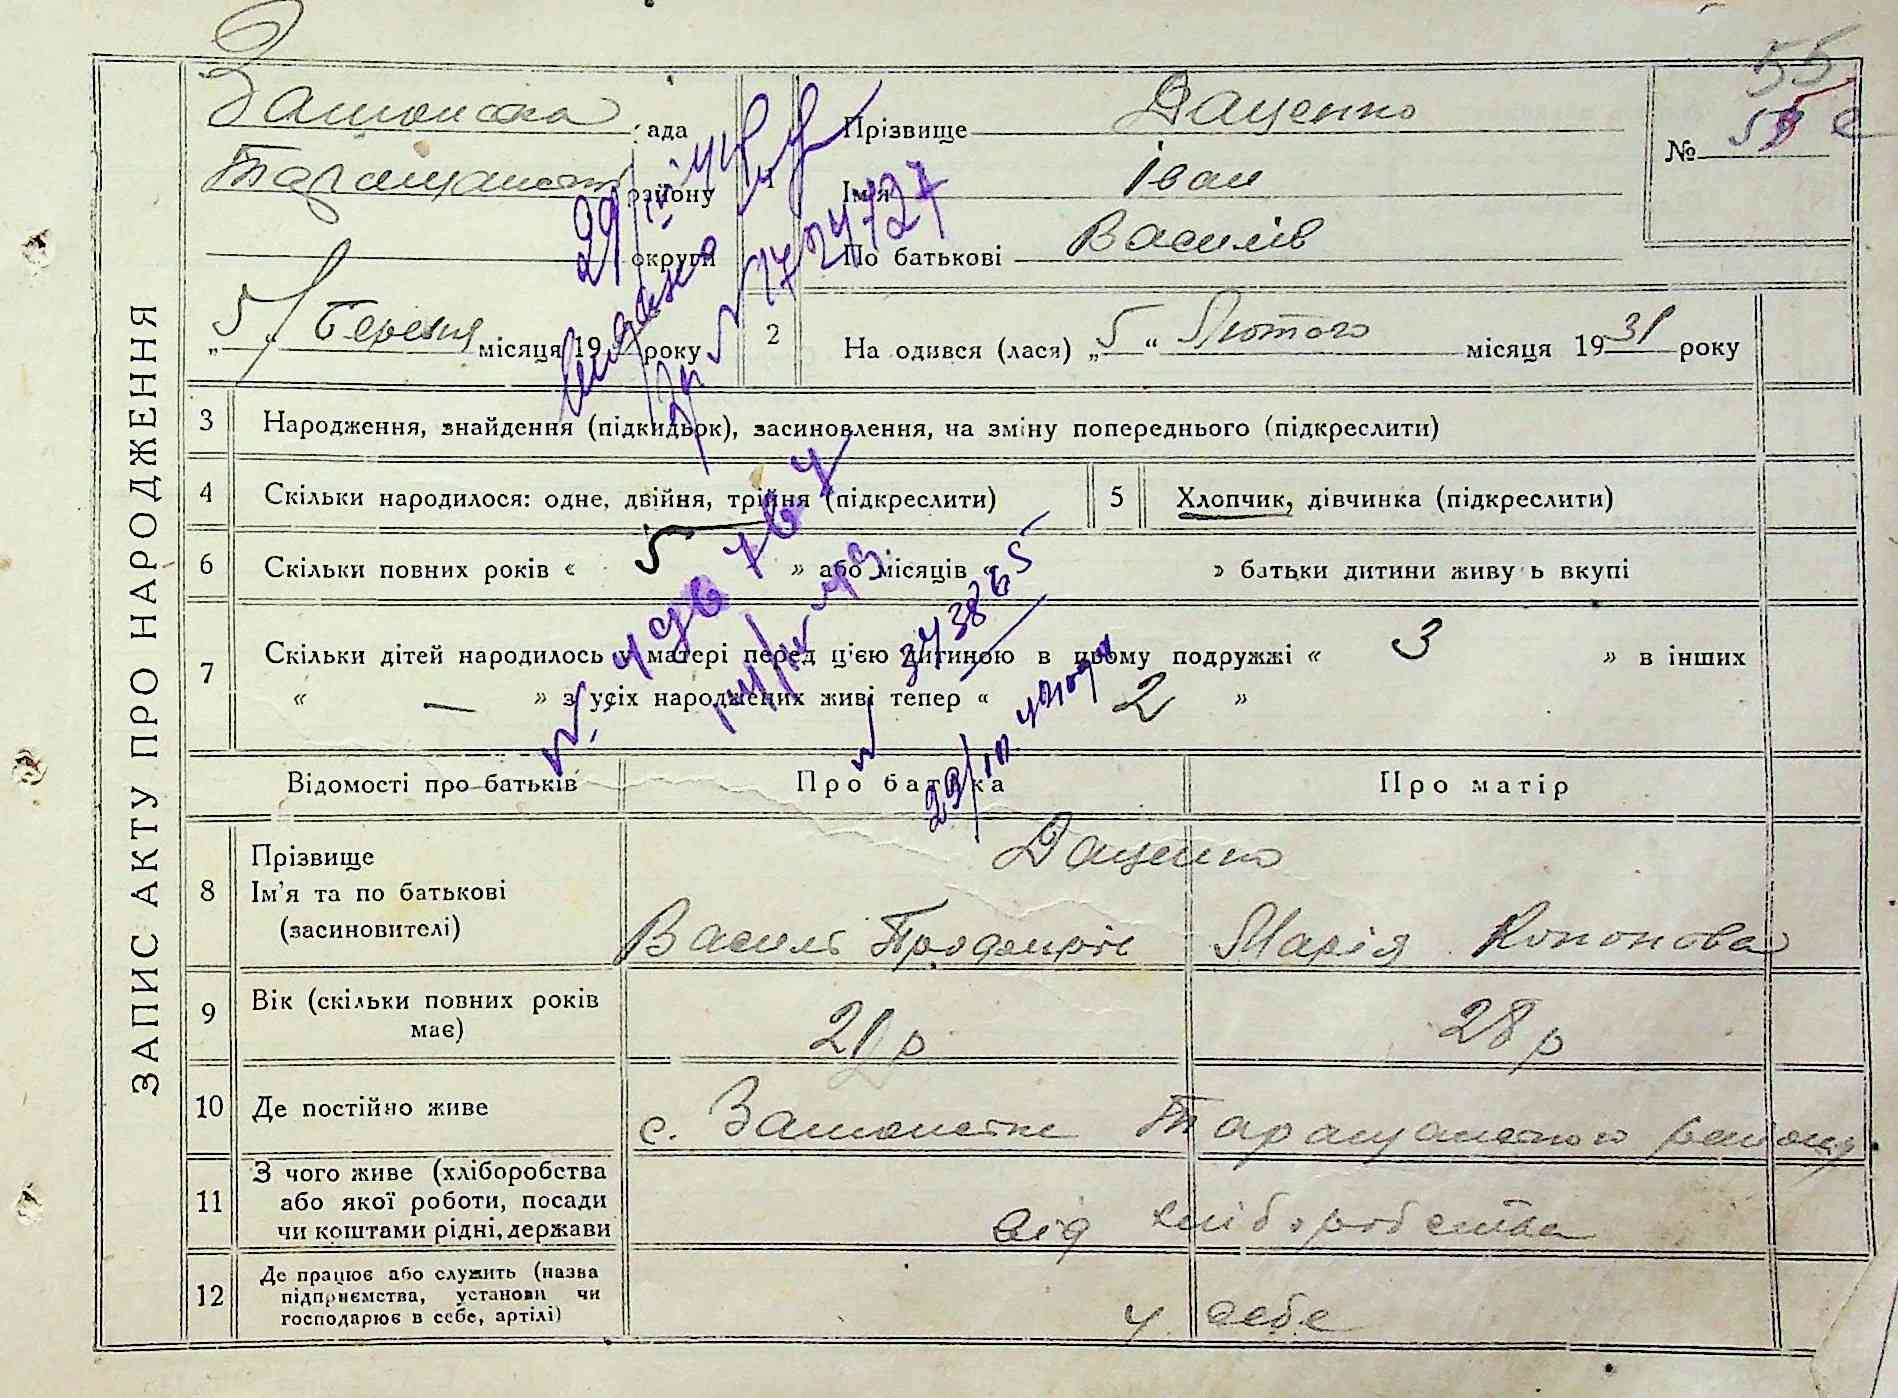 55
ЗАПИС АКТУ ПРО НАРОДЖЕННЯ
ада
району
округи
„ 5 “ Березня місяця 19 року
1
Прізвище Даценко
Ім'я Іван
По батькові Василів
№
2
На одився (лася) „ 5 “ Лютого місяця 19 31 року
29/IV
Видано
№ 1724727
3 Народження, знайдення (підкидьок), засиновлення, на зміну попереднього (підкреслити)
4 Скільки народилося: одне, двійня, трійня (підкреслити)
5 Хлопчик, дівчинка (підкреслити)
6 Скільки повних років « 5 » або місяців « » батьки дитини живу ь вкупі
7 Скільки дітей народилось у матері перед ц'єю дитиною в цьому подружжі « 3 » в інших
« — » з усіх народжених живі тепер « 2 »
Відомості про батьків
Про батька
Про матір
8 Прізвище
Ім'я та по батькові
(засиновителі)
Даценко
Василь
Марія Кононова
9 Вік (скільки повних років
має)
21 р
28 р
10 Де постійно живе
с. Таращанского району
11 З чого живе (хліборобства
або якої роботи, посади
чи коштами рідні, держави
від хліборобства
12 Де працює або служить (назва
підприємства, установи чи
господарює в себе, артілі)
у себе